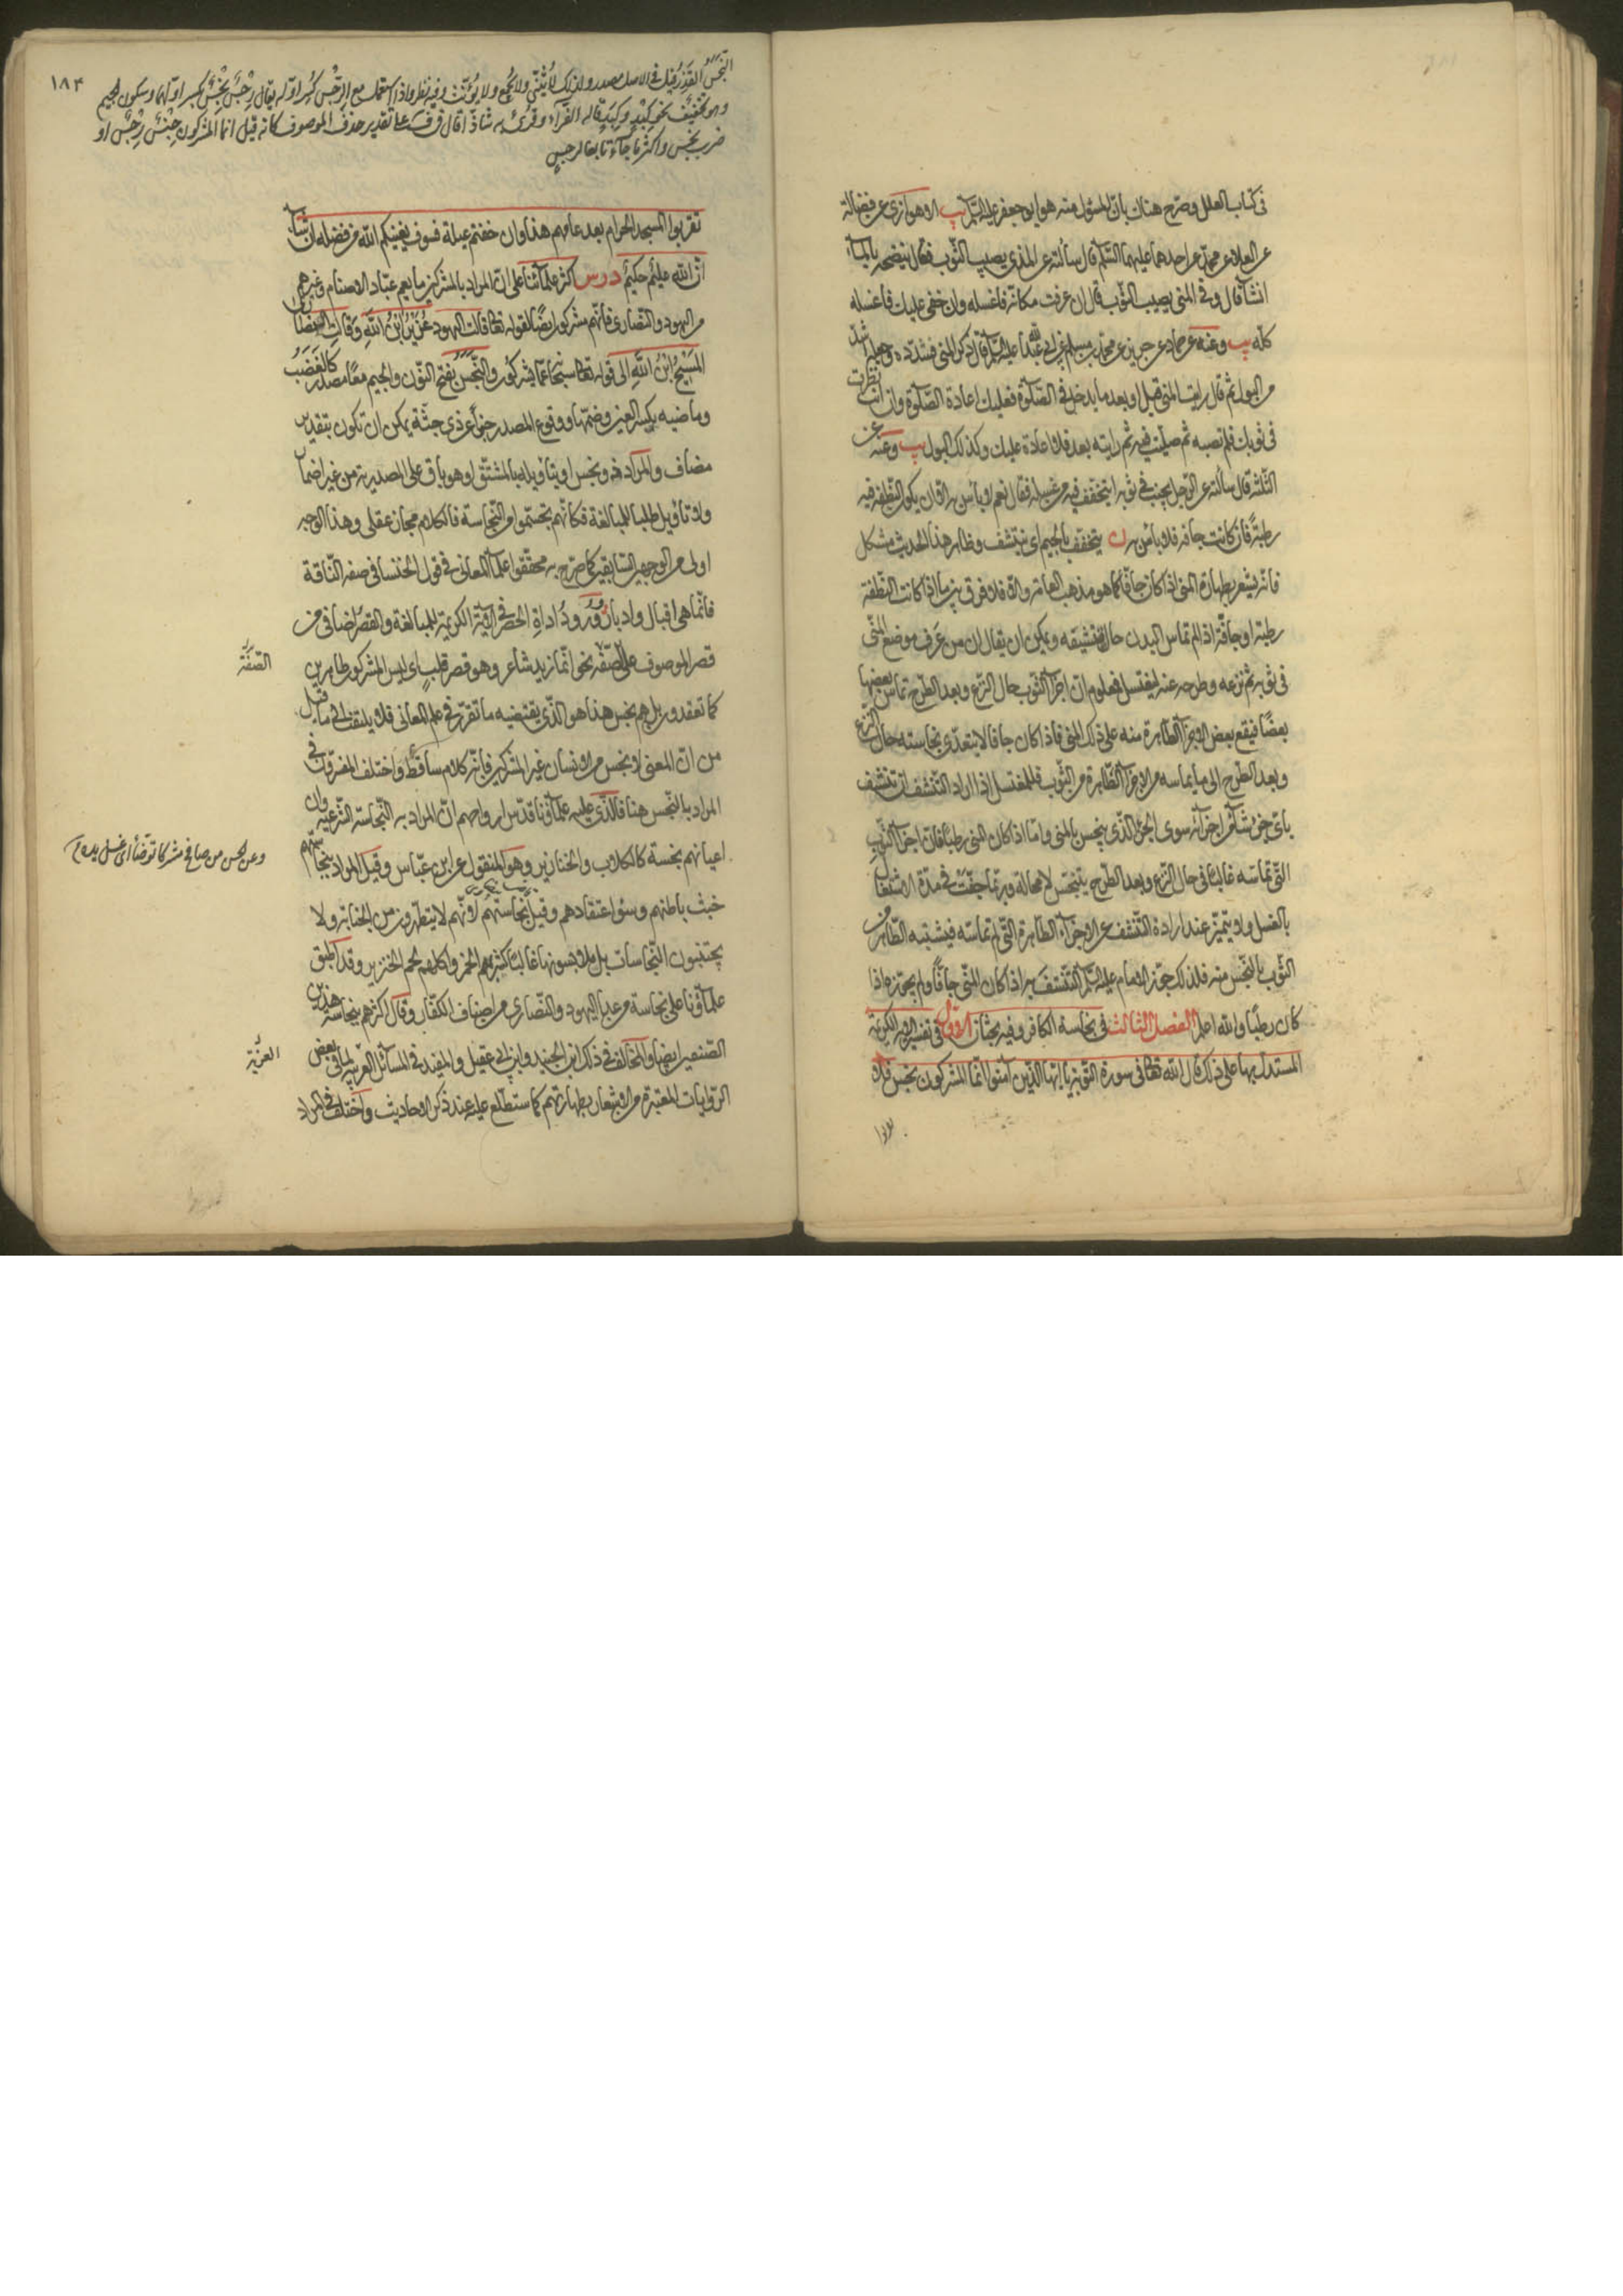 في كتاب العلل وصرح هناك بان المسؤل منه هو ابو جعفر عليه السلم يب الاهوازي عن فضالة
عن العلاء عن محمد عن احدهما عليهما السلم قال سألته عن المذي يصيب الثوب فقال ينضحه بالماء
انشآ قال وفي المني يصيب الثوب قال ان عرفت مكانه فاغسله وان خفي عليك فاغسله
كله يب وعنه عن حماد عن حريز عن محمد بن مسلم عن ابي عبدالله عليه السلم قال ذكر المني فشدده وجعله اشد
من البول ثم قال ان رايت المني قبل او بعد ما يدخل في الصلوة فعليك اعادة الصلوة وان انت نظرت
في ثوبك فلم تصبه ثم صليت فيه ثم رايته بعد فلا اعادة عليك وكذلك البول يب وعنه عن
الثلثة قال سألته عن الرجل يجنب في ثوبه ايتخفف فيه من غسله فقال نعم لا بأس به الا ان يكون النطفة فيه
رطبة فان كانت جافه فلا بأس به ن يتخفف بالجيم اي يتنشف وظاهر هذا الحديث مشكل
فانه يشعر بطهارة المني اذا كان جافا كما هو مذهب العامة والا فلا فرق بين ما اذا كانت النطفة
رطبة او جافة اذا لم تماس البدن حال تنشيفه ويمكن ان يقال ان من عرف موضع المني
في ثوبه ثم نزعه وطرحه عنه ليغتسل فمعلوم ان اجزآ الثوب حال النزع وبعد الطرح تماس بعضها
بعضًا فيقع بعض الاجزآ الطاهرة منه على ذلك المني فاذا كان جافا لا يتعدى نجاسته حال النزع
وبعد الطرح الى ما يماسه من الاجزآ الطاهرة من الثوب فللمغتسل اذا اراد التنشف ان يتنشف
باي جزء شآء من اجزآئه سوى الجزء الذي ينجس بالمني واما اذا كان المني رطبا فان اجزآ الثوب
التي تماسه غالبا في حال النزع وبعد الطرح يتنجس لا محالة وربما جفت في مدة الاشتغال
بالغسل ولا يتميز عند ارادة التنشف عن الاجزآء الطاهرة التي لم تماسه فيشتبه الطاهر من
الثوب بالنجس منه فلذلك جوز الامام عليه السلم التنشف به اذا كان المني جافًا ولم يجوزه اذا
كان رطبًا والله اعلم الفصل الثالث في نجاسة الكافر وفيه بحثان الاول في تفسير الاية الكريمة
المستدل بها على ذلك قال الله تعالى في سورة التوبة يا ايها الذين آمنوا انما المشركون نجس فلا
١٨٣
النجس القذر قيل في الاصل مصدر ولذلك لا يثنى ولا يجمع ولا يؤنث وفيه نظر واذا استعمل مع الرجس كسر اوله يقال رجس نجس بكسر اولهما وسكون الجيم
وهو تخفيف نحو كبد وكبد قاله الفرآء وقرئ به شاذا قال في ف على تقدير حذف الموصوف كانه قيل انما المشركون جنس رجس او
ضرب نجس واكثر ما جآء تابعا لرجس
تقربوا المسجد الحرام بعد عامهم هذا وان خفتم عيلة فسوف يغنيكم الله من فضله ان شآء
ان الله عليم حكيم درس اكثر علمآئنا على ان المراد بالمشركين ما يعم عباد الاصنام وغيرهم
من اليهود والنصارى فانهم مشركون ايضًا لقوله تعالى وقالت اليهود عزير ابن الله وقالت النصارى
المسيح ابن الله الى قوله تعالى سبحانه عما يشركون والنجس بفتح النون والجيم معًا مصدر كالغضب
وماضيه بكسر العين وضمها ووقوع المصدر خبرا عن ذي جثة يمكن ان تكون بتقدير
مضاف والمراد ذو نجس او بتأويله بالمشتق او هو باق على المصدرية من غير اضمار
ولا تأويل طلبا للمبالغة فكأنهم تجسموا من النجاسة فالكلام مجاز عقلي وهذا الوجه
اولى من الوجهين السابقين كما صرح به محققوا علمآ المعاني في قول الخنسا في صفة الناقة
فانما هي اقبال وادبار وورود اداة الحصر في الاية الكريمة للمبالغة والقصر اضافي من
قصر الموصوف على الصفة نحو انما زيد شاعر وهو قصر قلب اي ليس المشركون طاهرين
الصفة
كما تعتقدون بل هم نجس هذا هو الذي يقتضيه ما تقرر في علم المعاني فلا يلتفت الى ما قيل
من ان المعنى لا نجس من الانسان غير المشركين فانه كلام ساقط واختلف المفسرون في
المراد بالنجس هنا فالذي عليه علمآؤنا قدس ارواحهم ان المراد به النجاسة الشرعية وان
اعيانهم نجسة كالكلاب والخنازير وهو المنقول عن ابن عباس وقيل المراد بنجاستهم
وعن الحسن من صافح مشركا توضأ اي غسل يده
خبث باطنهم وسوء اعتقادهم وقيل نجاستهم لانهم لا يتطهرون من الجنابة ولا
يجتنبون النجاسات بل يلابسونها غالبًا كشربهم الخمر واكلهم لحم الخنزير وقد اطبق
علمآؤنا على نجاسة من عدا اليهود والنصارى من اصناف الكفار وقال اكثرهم بنجاسة هذين
الصنفين ايضا والمخالف في ذلك ابن الجنيد وابن ابي عقيل والمفيد في المسآئل الغرية لما في بعض
الغرية
الروايات المعتبرة من الاشعار بطهارتهم كما ستطلع عليه عند ذكر الاحاديث واختلف في المراد